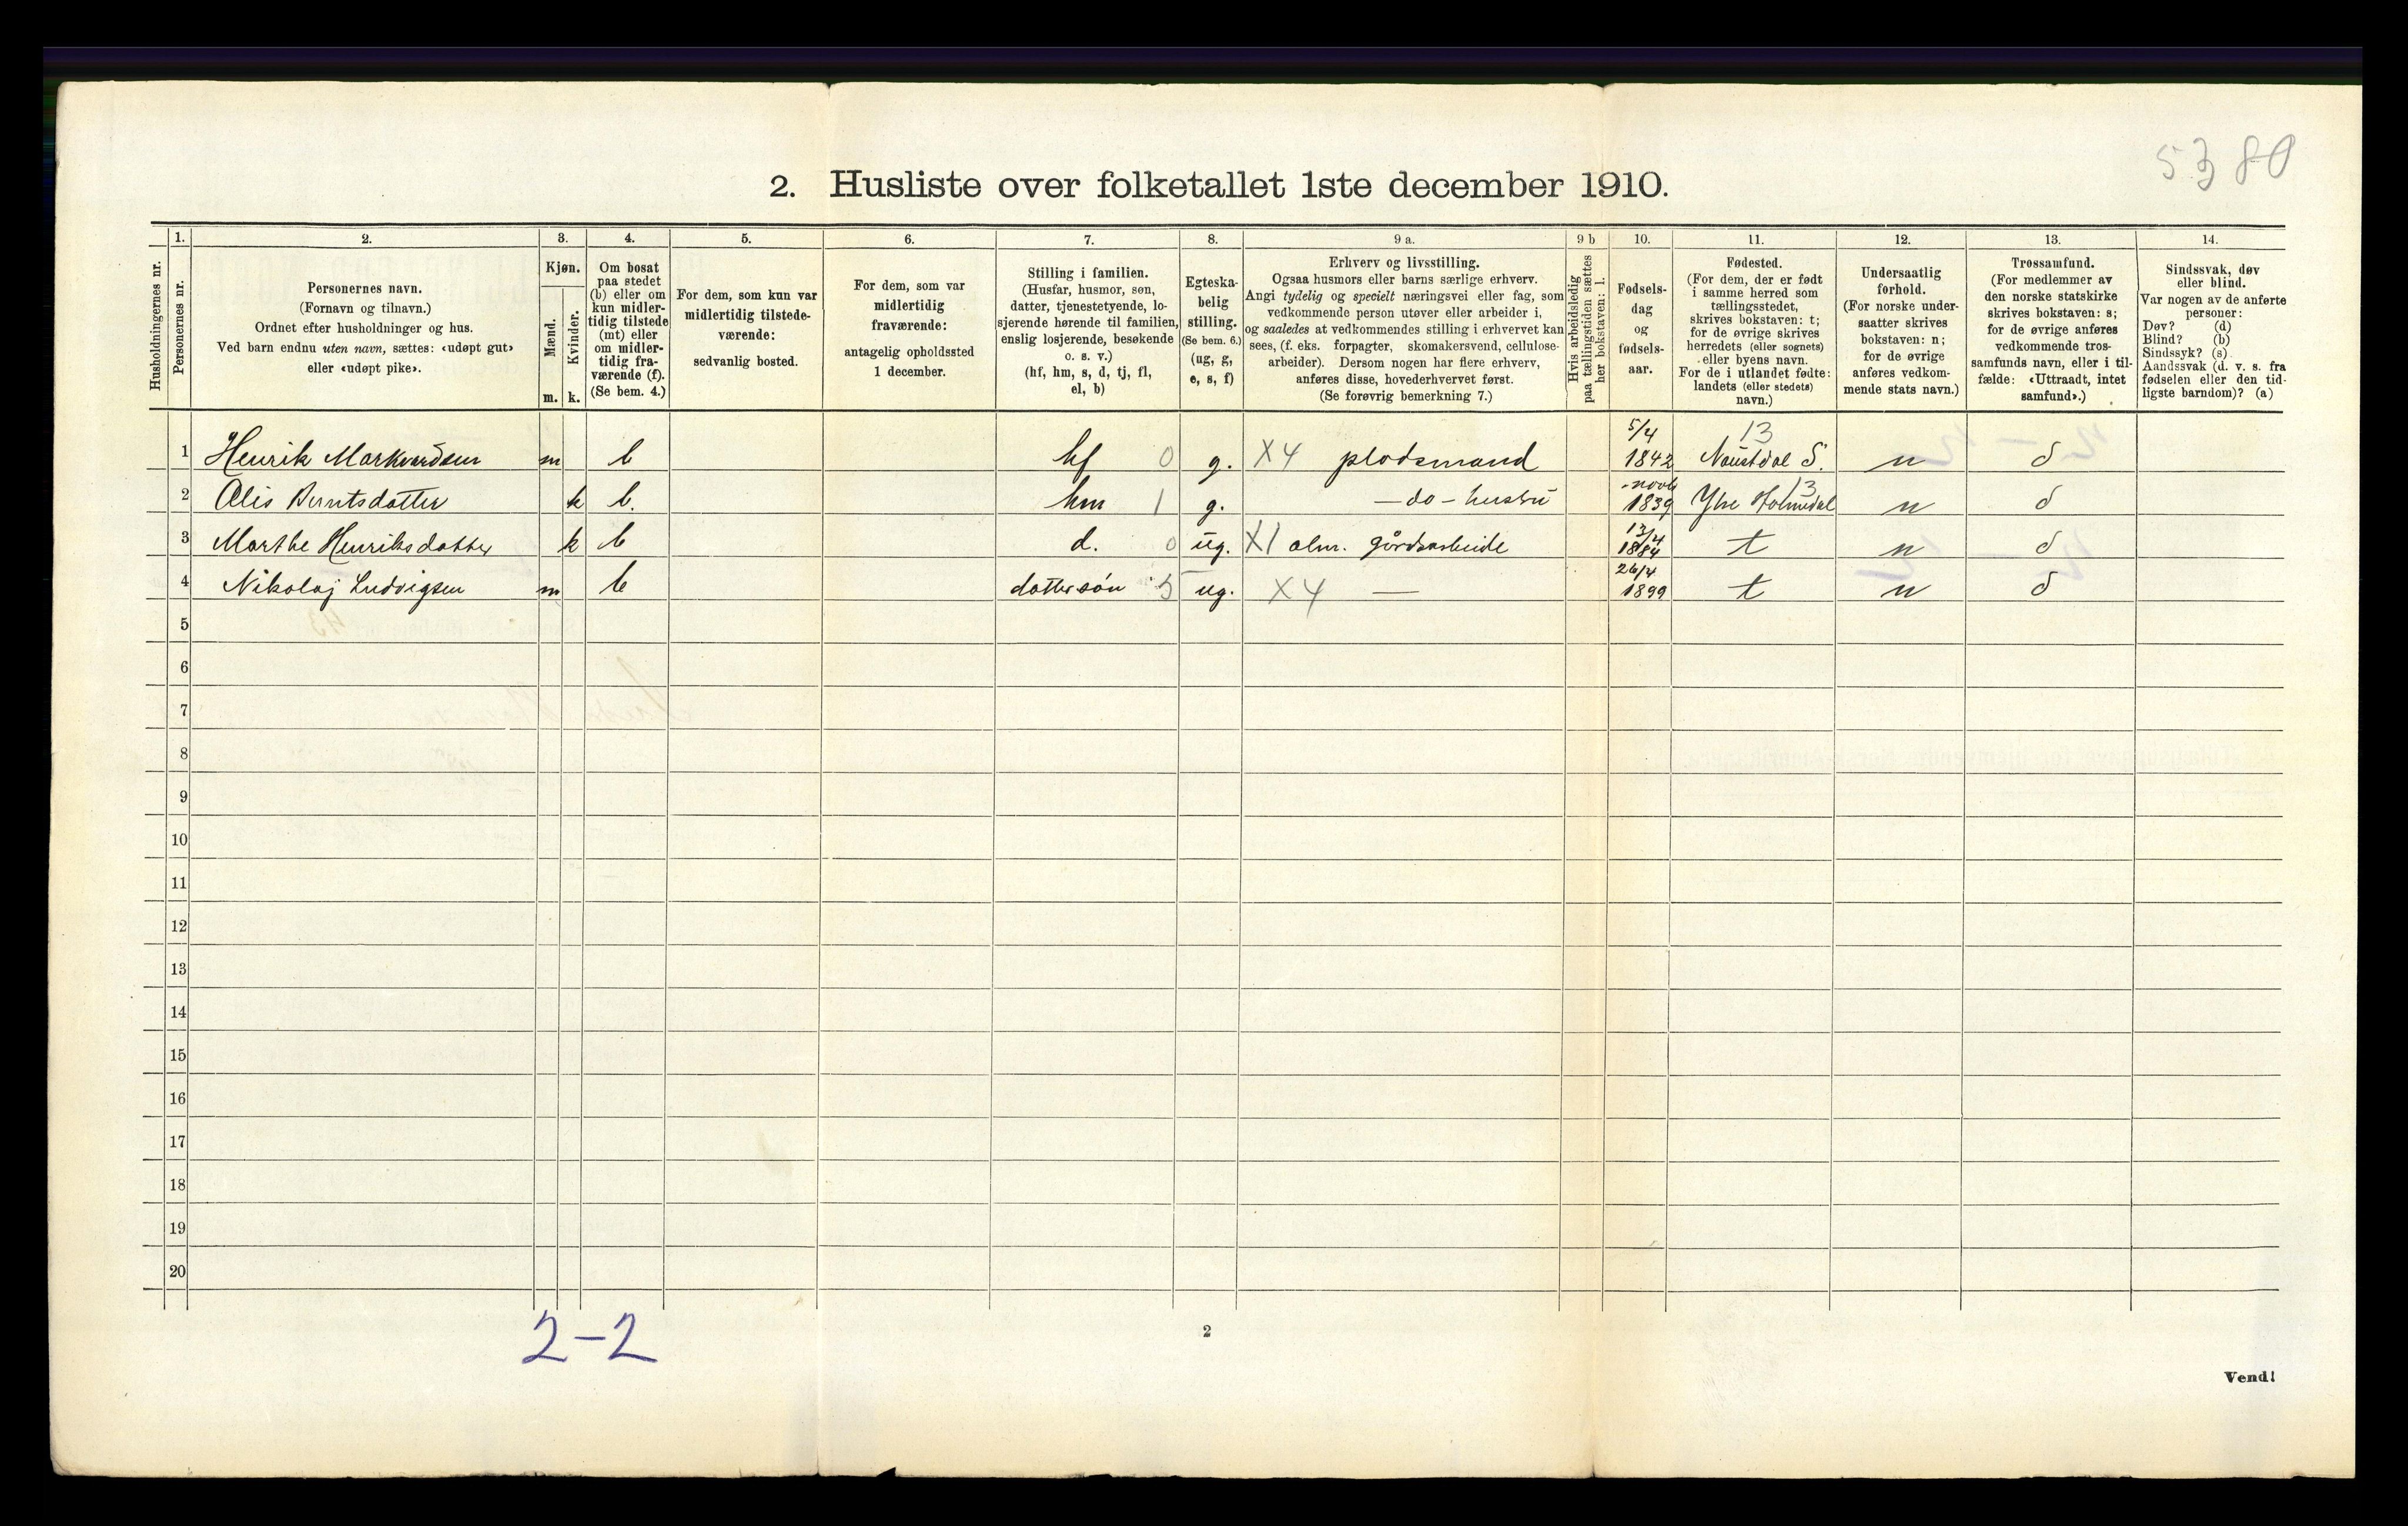 5380
2. Husliste over folketallet 1ste december 1910.
Husholdningernes nr.
1.
Personernes nr.
2.
Personernes navn.
(Fornavn og tilnavn.)
Ordnet efter husholdninger og hus.
Ved barn endnu uten navn, sættes: «udøpt gut»
eller «udøpt pike».
3.
Kjøn.
Mænd.
Kvinder.
m. k.
4.
Om bosat
paa stedet
(b) eller om
kun midler-
tidig tilstede
(mt) eller
om midler-
tidig fra-
værende (f).
(Se bem. 4.)
5.
For dem, som kun var
midlertidig tilstede-
værende:
sedvanlig bosted.
6.
For dem, som var
midlertidig
fraværende:
antagelig opholdssted
1 december.
7.
Stilling i familien.
(Husfar, husmor, søn,
datter, tjenestetyende, lo-
sjerende hørende til familien,
enslig losjerende, besøkende
o. s. v.)
(hf, hm, s, d, tj, fl,
el, b)
8.
Egteska-
belig
stilling.
(Se bem. 6.)
(ug, g,
e, s, f)
9 a.
Erhverv og livsstilling.
Ogsaa husmors eller barns særlige erhverv.
Angi tydelig og specielt næringsvei eller fag, som
vedkommende person utøver eller arbeider i,
og saaledes at vedkommendes stilling i erhvervet kan
sees, (f. eks. forpagter, skomakersvend, cellulose-
arbeider). Dersom nogen har flere erhverv,
anføres disse, hovederhvervet først.
(Se forøvrig bemerkning 7.)
9 b
Hvis arbeidsledig
paa tællingstiden sættes
her bokstaven: l.
10.
Fødsels-
dag
og
fødsels-
aar.
11.
Fødested.
(For dem, der er født
i samme herred som
tællingsstedet,
skrives bokstaven: t;
for de øvrige skrives
herredets (eller sognets)
eller byens navn.
For de i utlandet fødte:
landets (eller stedets)
navn.)
12.
Undersaatlig
forhold.
(For norske under-
saatter skrives
bokstaven: n;
for de øvrige
anføres vedkom-
mende stats navn.)
13.
Trossamfund.
(For medlemmer av
den norske statskirke
skrives bokstaven: s;
for de øvrige anføres
vedkommende tros-
samfunds navn, eller i til-
fælde: «Uttraadt, intet
samfund».)
14.
Sindssvak, døv
eller blind.
Var nogen av de anførte
personer:
Døv? (d)
Blind? (b)
Sindssyk? (s)
Aandssvak (d. v. s. fra
fødselen eller den tid-
ligste barndom)? (a)
1 Henrik Markvardsen m b hf 0 g. X4 plodsmand 5/4 1842 13 Naustdal S. n s
2 Alis Berntsdatter k b. hm 1 g. - do - hustru novb 1839 13 Ytre Holmedal n s
3 Marthe Henriksdatter k b d. 0 ug. X1 alm. gårdsarbeide 13/4 1884 t n s
4 Nikolaj Ludvigsen m b dattersøn 5 ug. X4 — 26/4 1899 t n s
5
6
7
8
9
10
11
12
13
14
15
16
17
18
19
20
2-2
2
Vend!